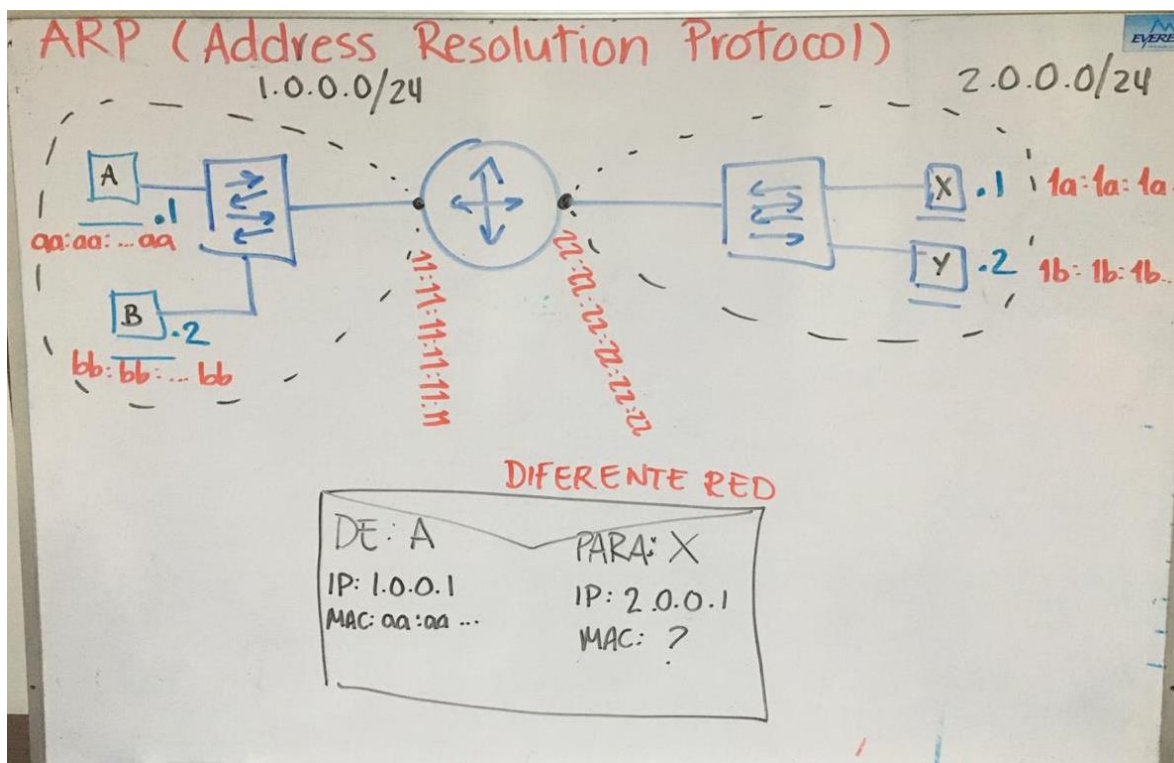 ARP (Address Resolution Protocol)
1.0.0.0/24
2.0.0.0/24
A
.1
aa:aa:...aa
B
.2
bb:bb:... bb
11:11:11:11:11:11
22:22:22:22:22:22
X .1 1a:1a:1a
Y .2 1b:1b:1b...
DIFERENTE RED
DE: A
IP: 1.0.0.1
MAC: aa:aa ...
PARA: X
IP: 2.0.0.1
MAC: ?